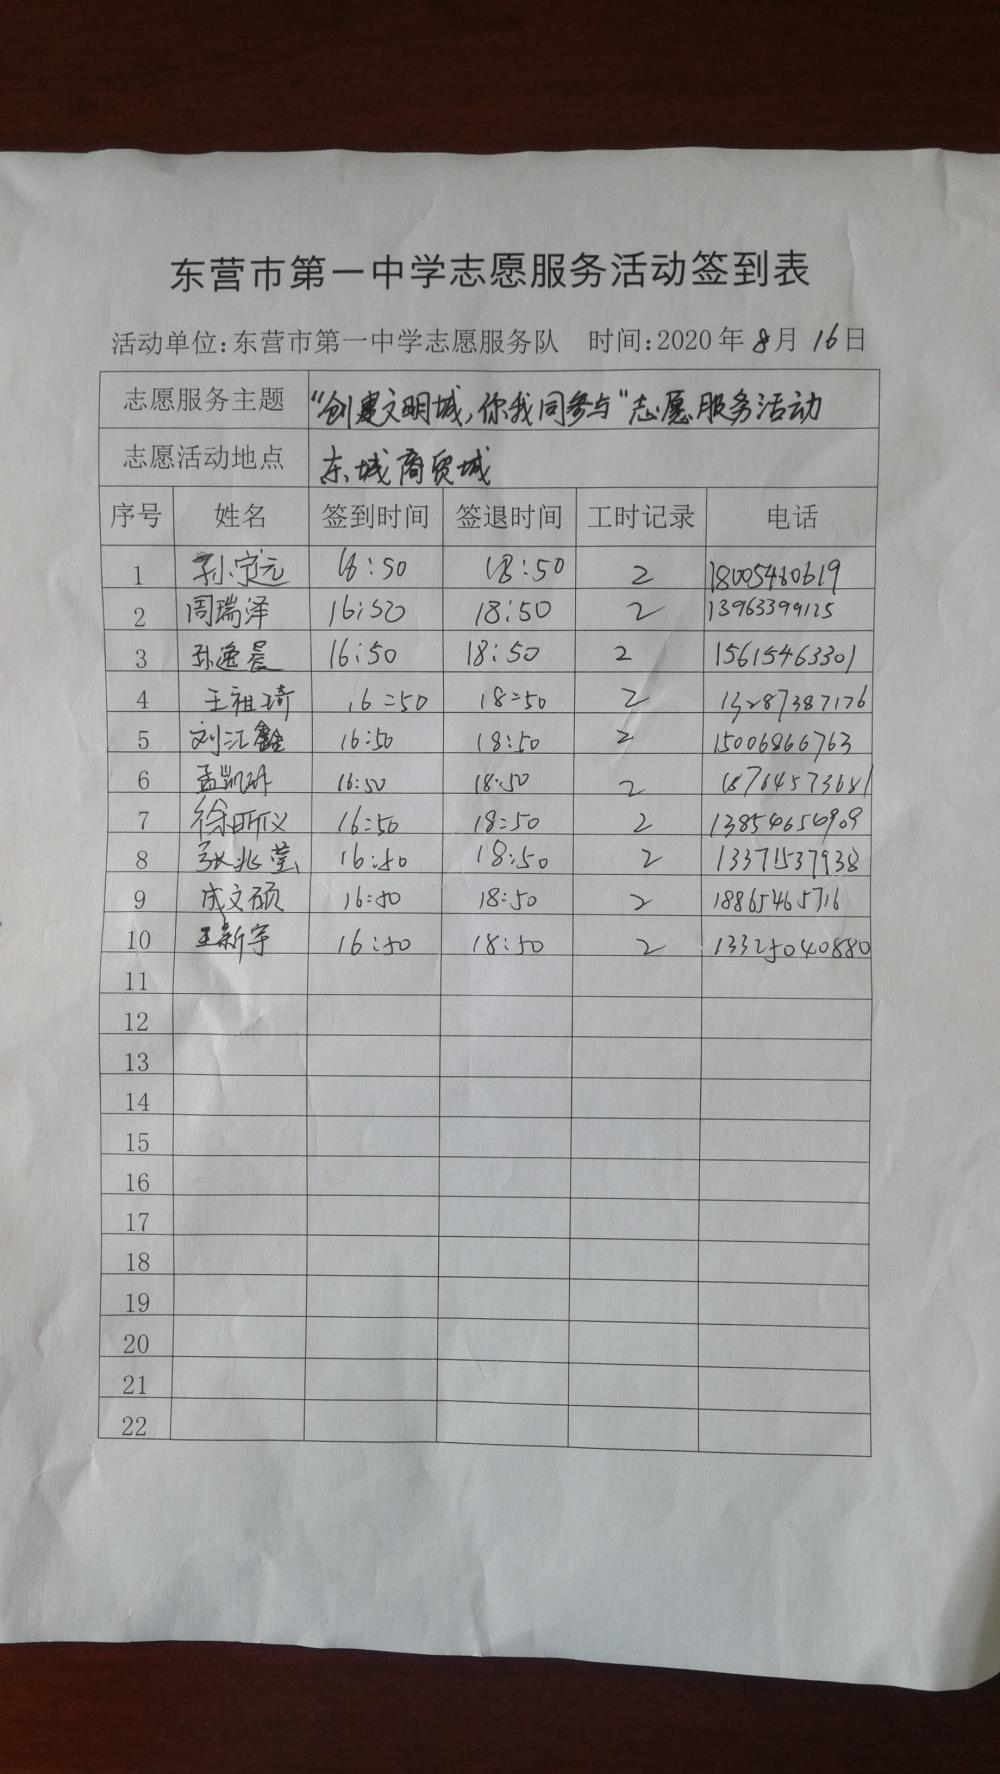 东营市第一中学志愿服务活动签到表
活动单位:东营市第一中学志愿服务队 时间:2020年8月16日
志愿服务主题 "创建文明城,你我同参与"志愿服务活动
志愿活动地点 东城商贸城
序号 姓名 签到时间 签退时间 工时记录 电话
1 孙定元 16:50 18:50 2 18005460619
2 周瑞泽 16:50 18:50 2 13963399125
3 孙逸晨 16:50 18:50 2 15615463301
4 王祖琦 16:50 18:50 2 13287387176
5 刘江鑫 16:50 18:50 2 15006866763
6 孟凯 16:50 18:50 2 18764573681
7 徐昕仪 16:50 18:50 2 13854654909
8 张兆莹 16:50 18:50 2 13371537938
9 成文硕 16:50 18:50 2 18865465716
10 王新宇 16:50 18:50 2 13325040880
11
12
13
14
15
16
17
18
19
20
21
22